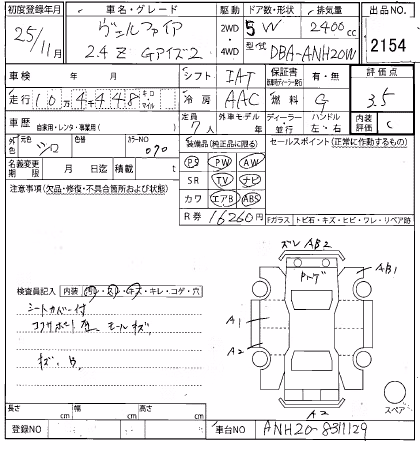 初度登録年月 車名・グレード 駆動 ドア数・形状 排気量 出品NO.
25/11月 ヴェルファイア 2WD 5 W 2400cc 2154
2.4 Z Gアイズ2 4WD 型式 DBA-ANH20W
車検 年 月 シフト IAT 保証書 有・無 評価点
走行 10万4448 キロ マイル 冷房 AAC 燃料 G 3.5
車歴 自家用・レンタ・事業用( ) 定員 7人 外車モデル 年 ディーラー・並行 ハンドル 左・右 内装評価 C
外色 シロ 色替 カラーNO 070 装備品(純正品に限る) セールスポイント(正常に作動するもの)
PS PW AW
名義変更期限 月 日迄 積載 t SR TV ナビ
注意事項(欠品・修復・不具合箇所および状態) カワ エアB ABS
R券 16260円 Fガラス トビ石・キズ・ヒビ・ワレ・リペア跡
ズレ AB2
AB1
検査員記入 内装 ・キレ・コゲ・穴
シートカバー付
モールキズ
A1
A2
スペア
A2
長さ cm 幅 cm 高さ cm
登録NO 車台NO ANH20-8311129